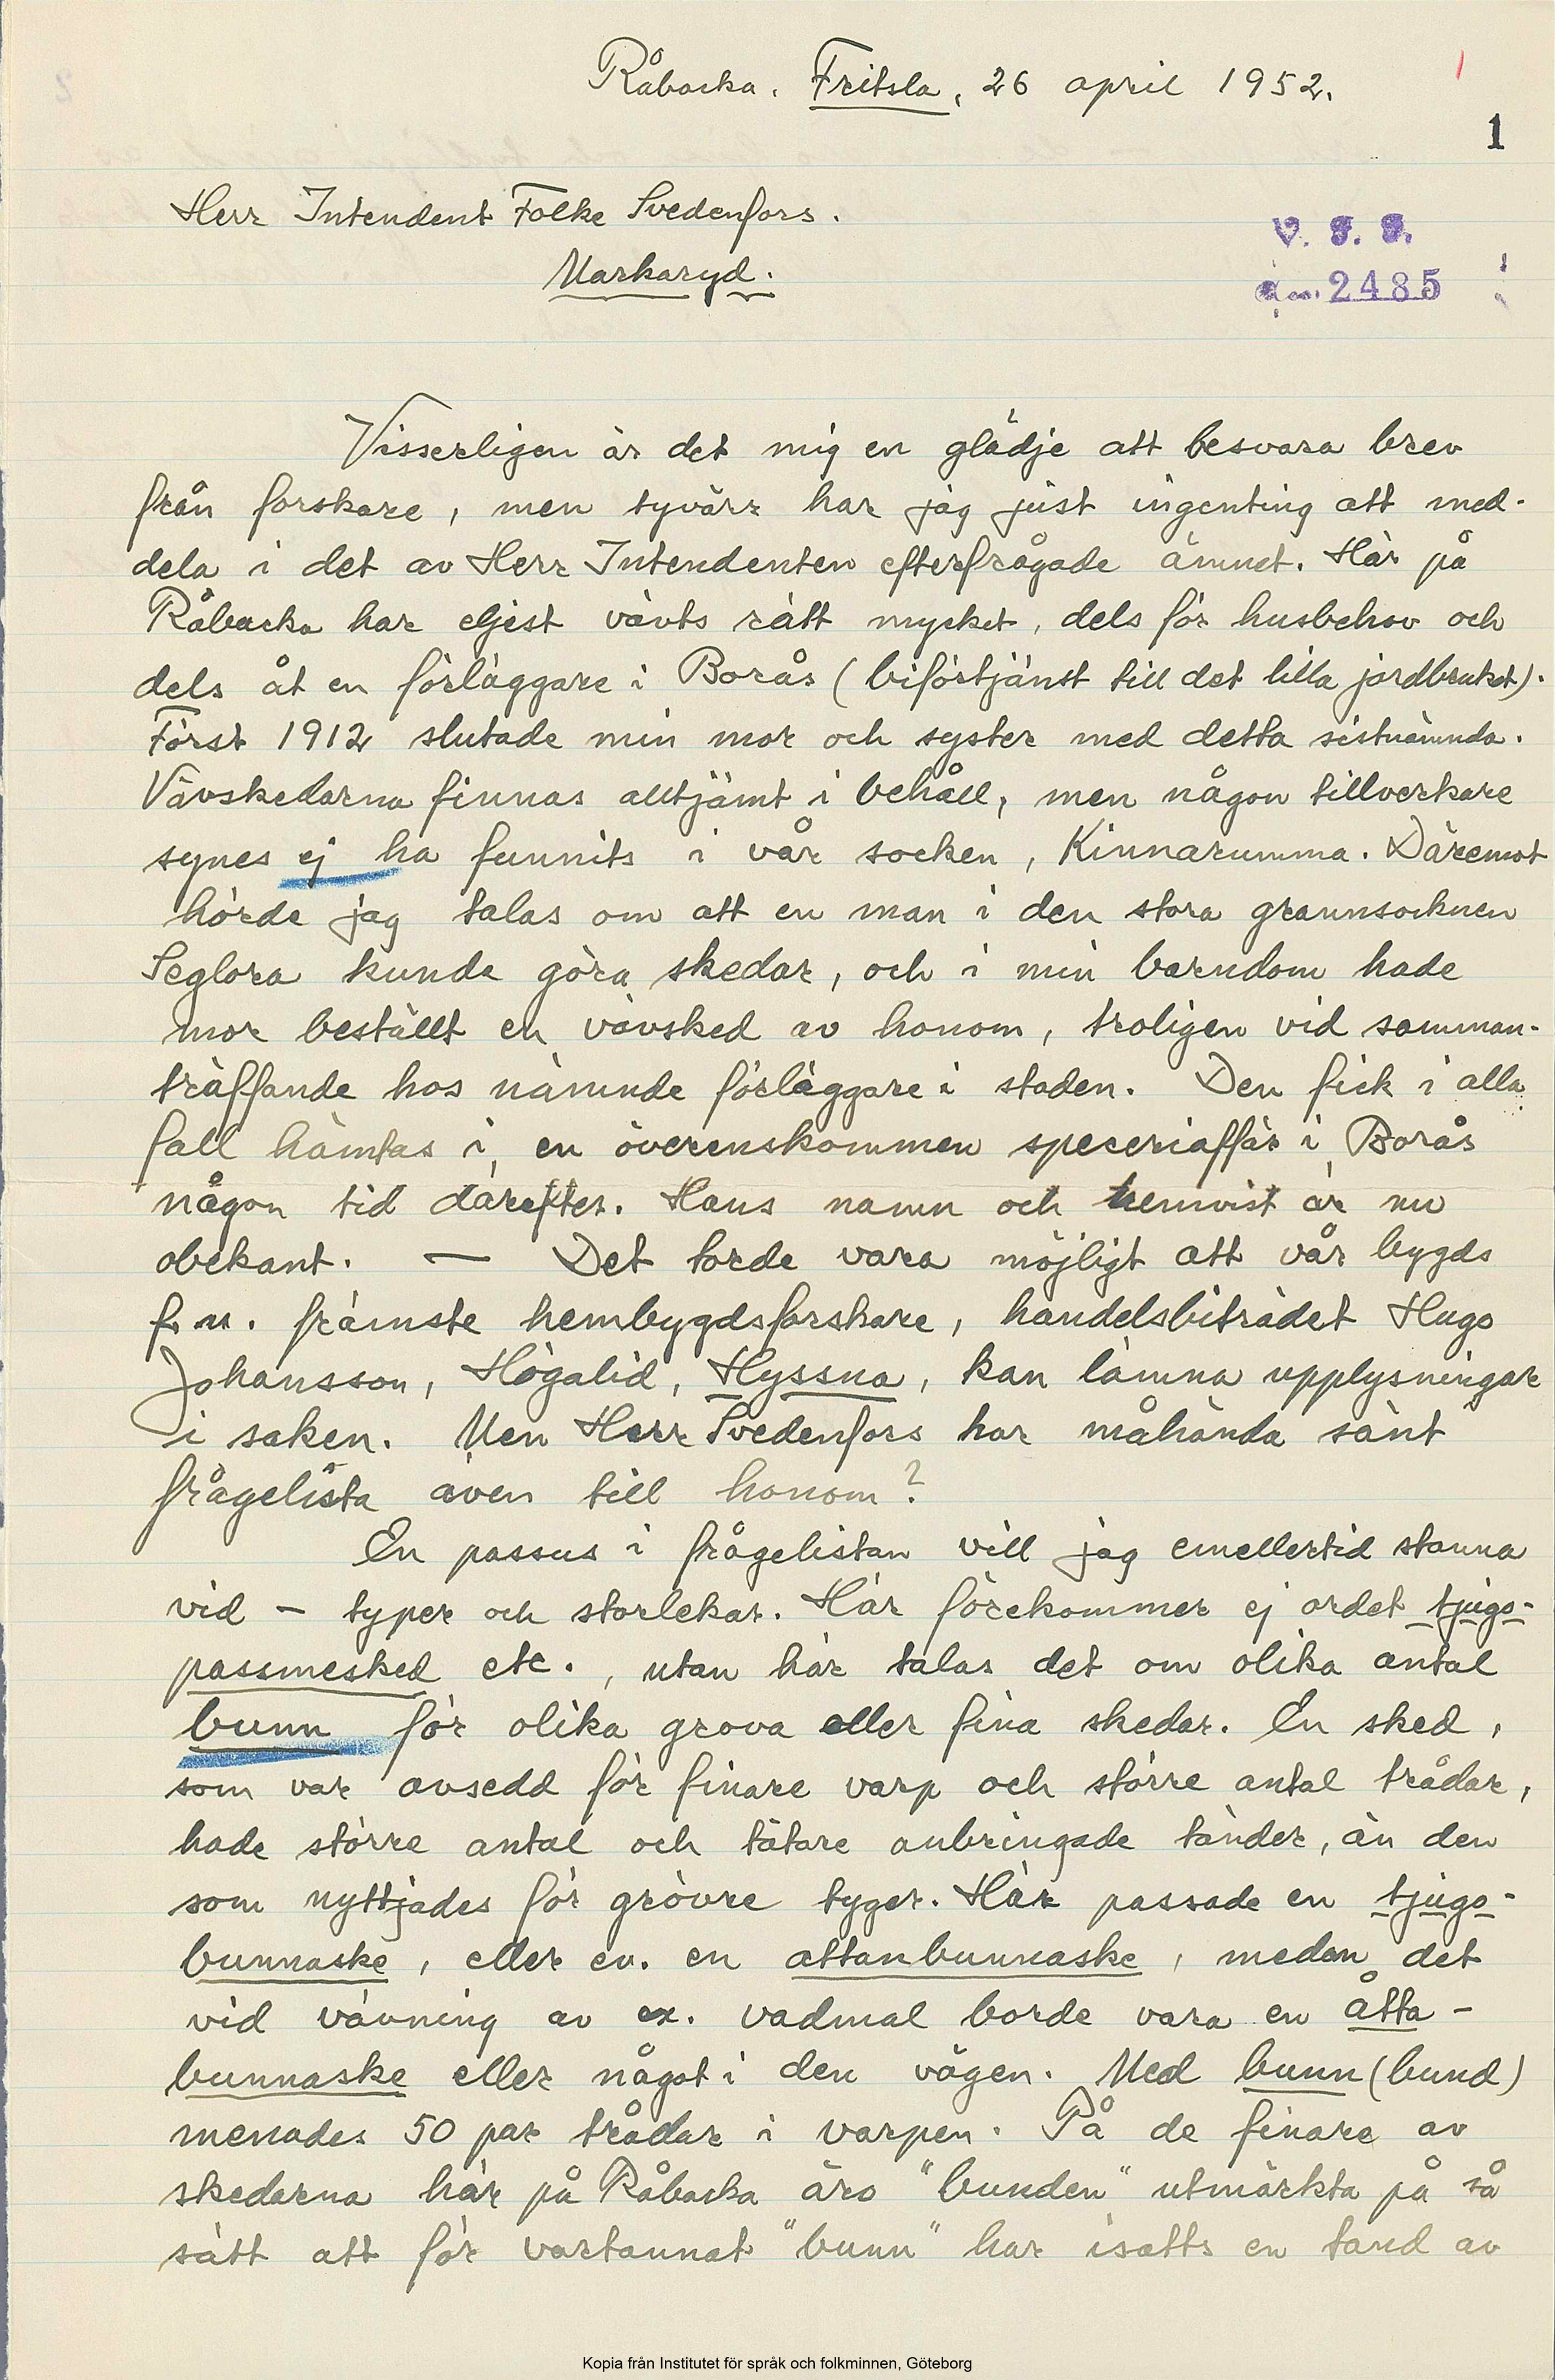 Råbacka. Fritsla, 26 april 1952.
1
Herr Intendent Folke Svedenfors.
Markaryd.
2485
Visserligen är det mig en glädje att besvara brev
från forskare, men tyvärr har jag just ingenting att med-
dela i det av Herr Intendenten efterfrågade ämnet. Här på
Råbacka har eljest vävts rätt mycket, dels för husbehov och
dels åt en förläggare i Borås (biförtjänst till det lilla jordbruket).
Först 1912 slutade min mor och syster med detta sistnämnda.
Vävskedarna finnas alltjämt i behåll, men någon tillverkare
synes ej ha funnits i vår socken, Kinnarumma. Däremot
hörde jag talas om att en man i den stora grannsocknen
Seglora kunde göra skedar, och i min barndom hade
mor beställt en vävsked av honom, troligen vid samman-
träffande hos nämnde förläggare i staden. Den fick i alla
fall hämtas i en överenskommen speceriaffär i Borås
någon tid därefter. Hans namn och hemvist är nu
obekant. — Det torde vara möjligt att vår bygds
f.n. främste hembygdsforskare, handelsbiträdet Hugo
Johansson, Högalid, Hyssna, kan lämna upplysningar
i saken. Men Herr Svedenfors har måhända sänt
frågelista även till honom?
En passus i frågelistan vill jag emellertid stanna
vid – typer och storlekar. Här förekommer ej ordet tjugo-
passmesked etc., utan här talas det om olika antal
bunn för olika grova eller fina skedar. En sked,
som var avsedd för finare varp och större antal trådar,
hade större antal och tätare anbringade tänder, än den
som nyttjades för grövre tyger. Här passade en tjugo-
bunnaske, eller ev. en attanbunnaske, medan det
vid vävning av ex. vadmal borde vara en åtta-
bunnaske eller något i den vägen. Med bunn (bund)
menades 50 par trådar i varpen. På de finare av
skedarna här på Råbacka äro "bunden" utmärkta på så
sätt att för vartannat "bunn" har isatts en tand av
Kopia från Institutet för språk och folkminnen, Göteborg